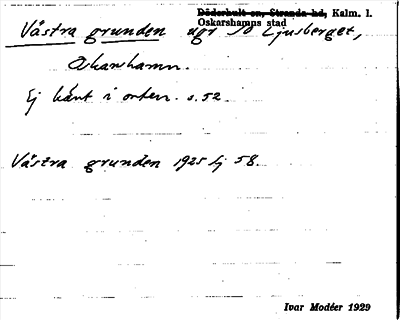 Döderhult sn, Stranda hd, Kalm. l.
Oskarshamns stad
Västra grunden ugr SO Ljusberget,
Oskarshamn.
Ej känt i orten. s. 52
Västra grunden 1925 lj 58.
Ivar Modéer 1929